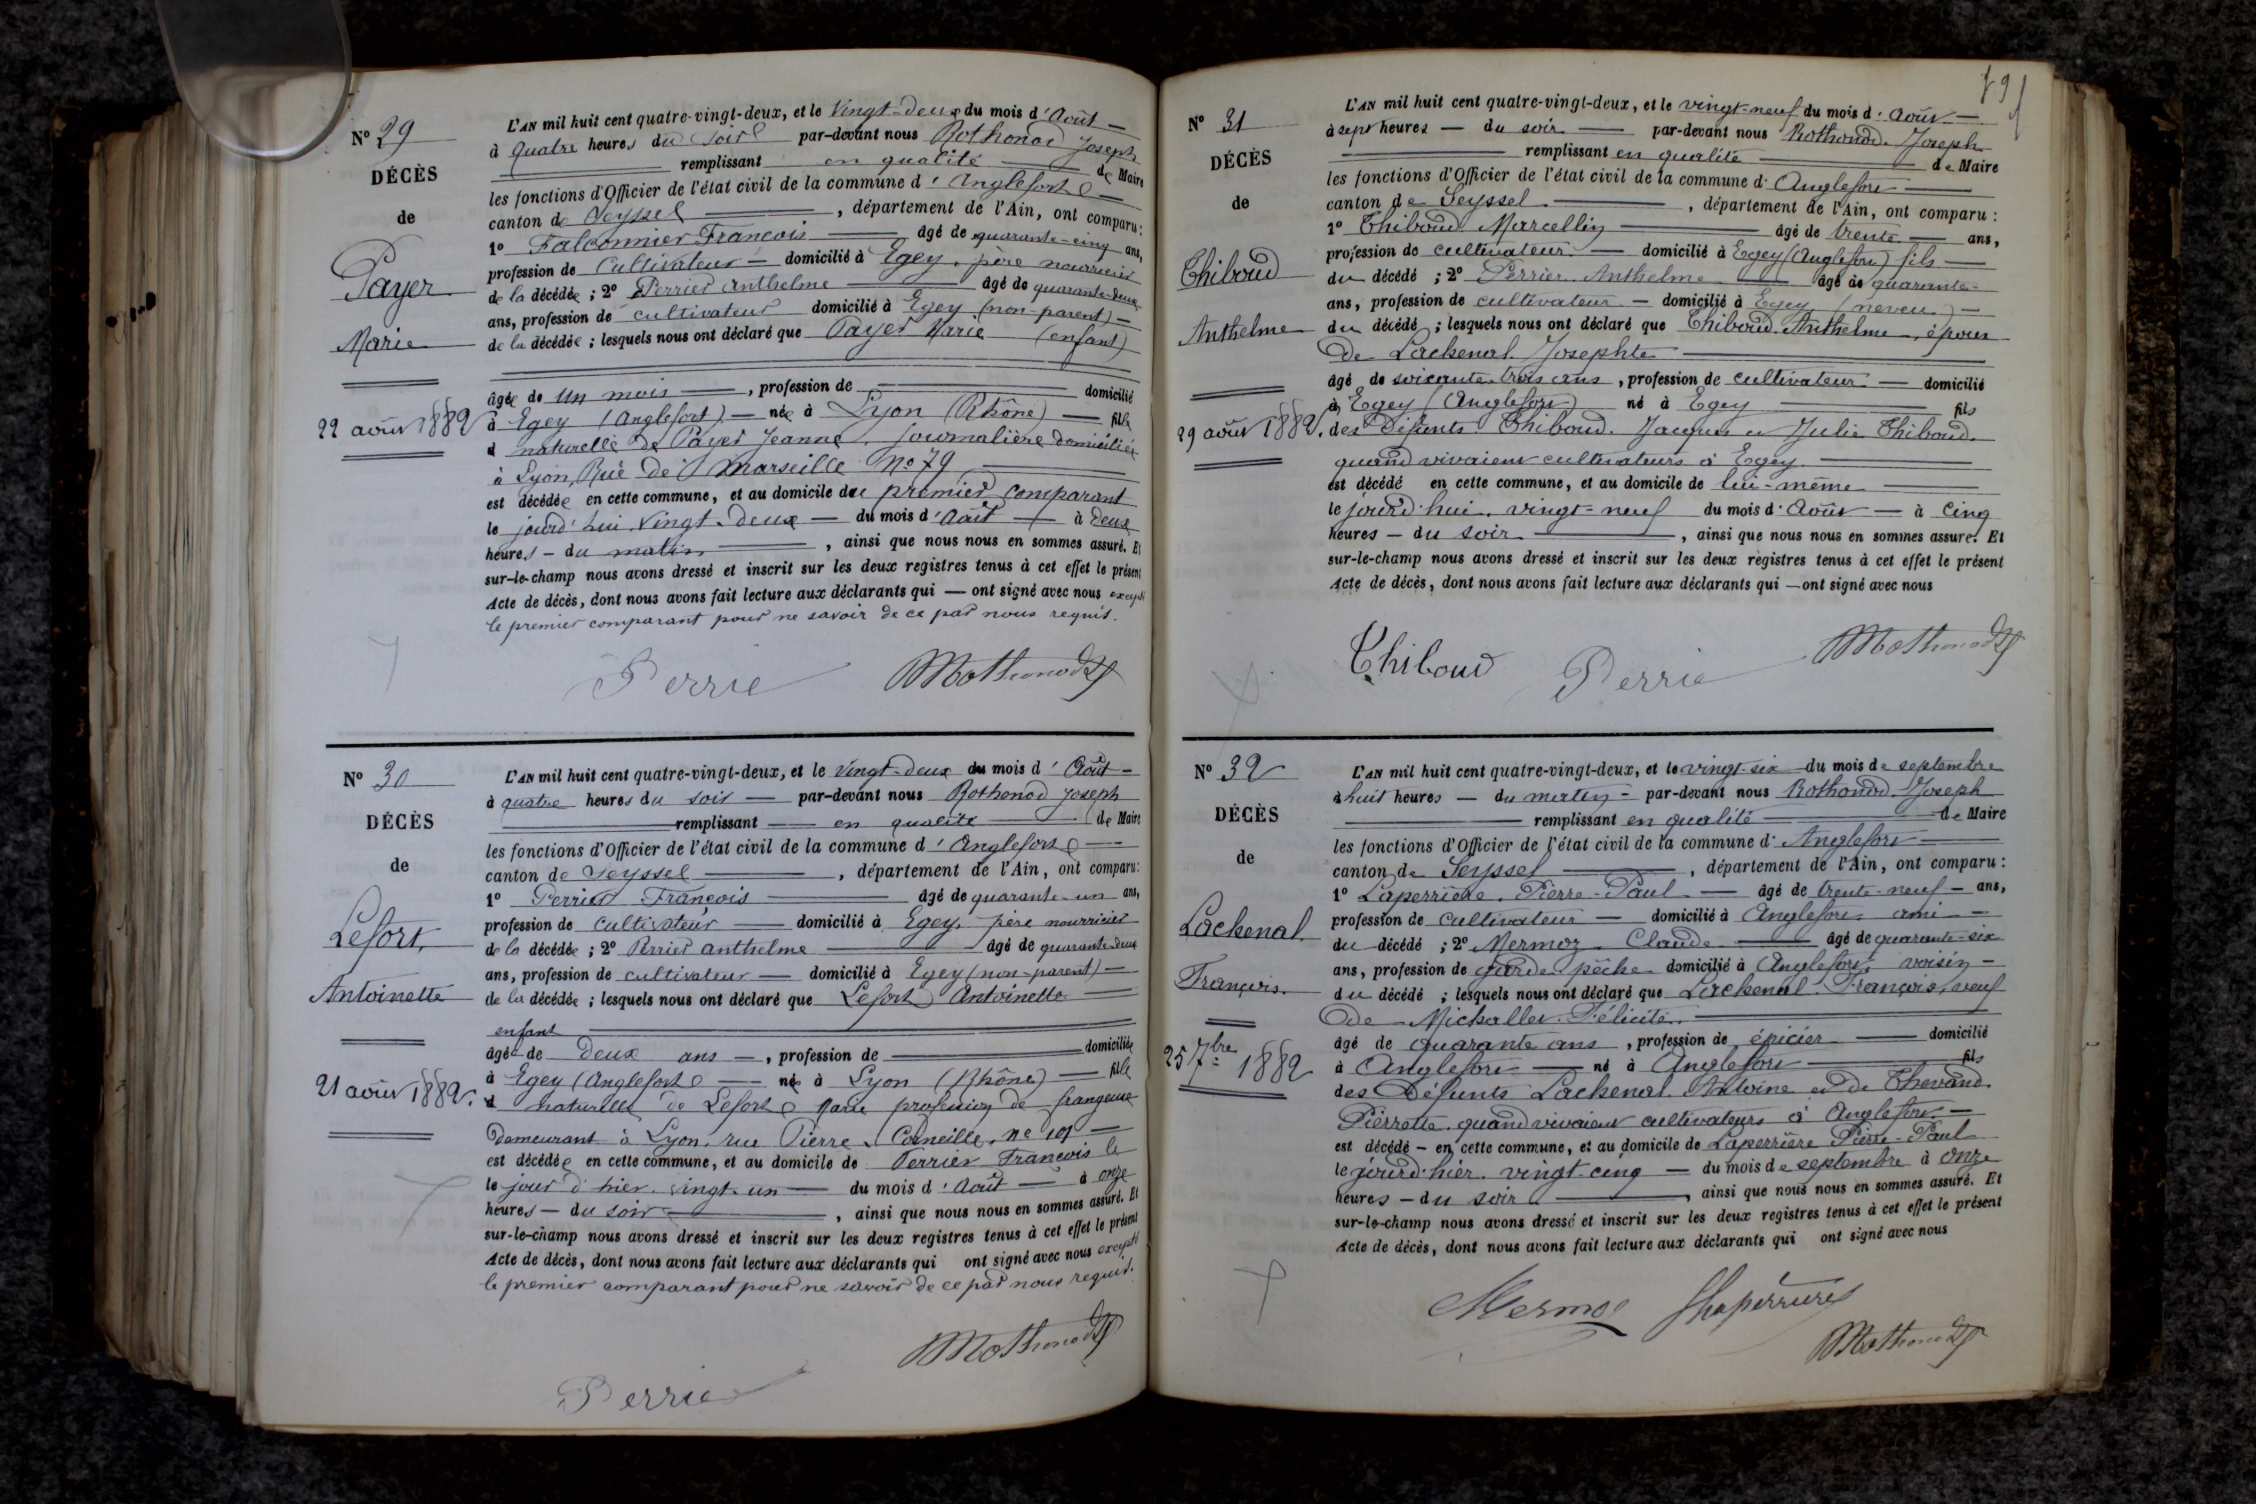 N° 29
DÉCÈS
de
Payer
Marie
22 août 1882
L'AN mil huit cent quatre-vingt-deux, et le Vingt-deux du mois d'Août
à quatre heures du soir par-devant nous Rothonod Joseph
remplissant en qualité de Maire
les fonctions d'Officier de l'état civil de la commune d'Anglefort
canton de Seyssel, département de l'Ain, ont comparu :
1° Falconnier François âgé de quarante-cinq ans,
profession de Cultivateur domicilié à Egey, père nourricier
de la décédée ; 2° Perrier Anthelme âgé de quarante-deux
ans, profession de cultivateur domicilié à Egey (non-parent)
de la décédée ; lesquels nous ont déclaré que Payer Marie (enfant)
âgée de Un mois, profession de domicilié
à Egey (Anglefort) née à Lyon (Rhône) fille
naturelle de Payer Jeanne, journalière domiciliée
à Lyon, Rue de Marseille N° 79
est décédée en cette commune, et au domicile du premier comparant
le jourd'hui Vingt-deux du mois d'Août à deux
heures du matin, ainsi que nous nous en sommes assuré. Et
sur-le-champ nous avons dressé et inscrit sur les deux registres tenus à cet effet le présent
Acte de décès, dont nous avons fait lecture aux déclarants qui — ont signé avec nous excepté
le premier comparant pour ne savoir de ce par nous requis.
Perrie Rothonod
N° 30
DÉCÈS
de
Lefort,
Antoinette
21 août 1882.
L'AN mil huit cent quatre-vingt-deux, et le Vingt-deux du mois d'Août
à quatre heures du soir par-devant nous Rothonod Joseph
remplissant en qualité de Maire
les fonctions d'Officier de l'état civil de la commune d'Anglefort
canton de Seyssel, département de l'Ain, ont comparu :
1° Perrier François âgé de quarante-un ans,
profession de cultivateur domicilié à Egey, père nourricier
de la décédée ; 2° Perrier anthelme âgé de quarante-deux
ans, profession de cultivateur domicilié à Egey (non-parent)
de la décédée ; lesquels nous ont déclaré que Lefort Antoinette
enfant
âgée de Deux ans, profession de domiciliée
à Egey (Anglefort) née à Lyon (Rhône) fille
naturelle de Lefort Marie profession de frangeuse
Demeurant à Lyon, rue Pierre Corneille, n° 101
est décédée en cette commune, et au domicile de Perrier François le
le jour d'hier vingt-un du mois d'Août à onze
heures du soir, ainsi que nous nous en sommes assuré. Et
sur-le-champ nous avons dressé et inscrit sur les deux registres tenus à cet effet le présent
Acte de décès, dont nous avons fait lecture aux déclarants qui ont signé avec nous excepté
le premier comparant pour ne savoir de ce par nous requis.
Rothonod
Perrie
N° 31
DÉCÈS
de
Thiboud
Anthelme
29 août 1882.
L'AN mil huit cent quatre-vingt-deux, et le vingt-neuf du mois d'Août
à sept heures du soir par-devant nous Rothonod Joseph
remplissant en qualité de Maire
les fonctions d'Officier de l'état civil de la commune d'Anglefort
canton de Seyssel, département de l'Ain, ont comparu :
1° Thiboud Marcellin âgé de trente ans,
profession de cultivateur domicilié à Egey (Anglefort) fils
du décédé ; 2° Perrier Anthelme âgé de quarante-
ans, profession de cultivateur domicilié à Egey (neveu)
du décédé ; lesquels nous ont déclaré que Thiboud Anthelme, époux
de Lackenal Josephte
âgé de soixante-trois ans, profession de cultivateur domicilié
à Egey (Anglefort) né à Egey fils
des Défunts Thiboud Jacques et Julie Thiboud
quand vivaient cultivateurs à Egey
est décédé en cette commune, et au domicile de lui-même
le jourd'hui vingt-neuf du mois d'Août à cinq
heures du soir, ainsi que nous nous en sommes assuré. Et
sur-le-champ nous avons dressé et inscrit sur les deux registres tenus à cet effet le présent
Acte de décès, dont nous avons fait lecture aux déclarants qui — ont signé avec nous
Thiboud Perrie Rothonod
N° 32
DÉCÈS
de
Lackenal
François.
25 7bre 1882
L'AN mil huit cent quatre-vingt-deux, et le vingt-six du mois de septembre
à huit heures du matin par-devant nous Rothonod Joseph
remplissant en qualité de Maire
les fonctions d'Officier de l'état civil de la commune d'Anglefort
canton de Seyssel, département de l'Ain, ont comparu :
1° Laperrière Pierre-Paul âgé de trente-neuf ans,
profession de cultivateur domicilié à Anglefort, ami
du décédé ; 2° Mermoz Claude âgé de quarante-six
ans, profession de garde pêche domicilié à Anglefort, voisin
du décédé ; lesquels nous ont déclaré que Lackenal François, veuf
de Michallet Félicité
âgé de quarante ans, profession de épicier domicilié
à Anglefort né à Anglefort fils
des Défunts Lackenal Antoine et de Thevand
Pierrette quand vivaient cultivateurs à Anglefort
est décédé en cette commune, et au domicile de Laperrière Pierre-Paul
le jourd'hier vingt-cinq du mois de septembre à onze
heures du soir, ainsi que nous nous en sommes assuré. Et
sur-le-champ nous avons dressé et inscrit sur les deux registres tenus à cet effet le présent
Acte de décès, dont nous avons fait lecture aux déclarants qui ont signé avec nous
Mermoz Laperrière
Rothonod